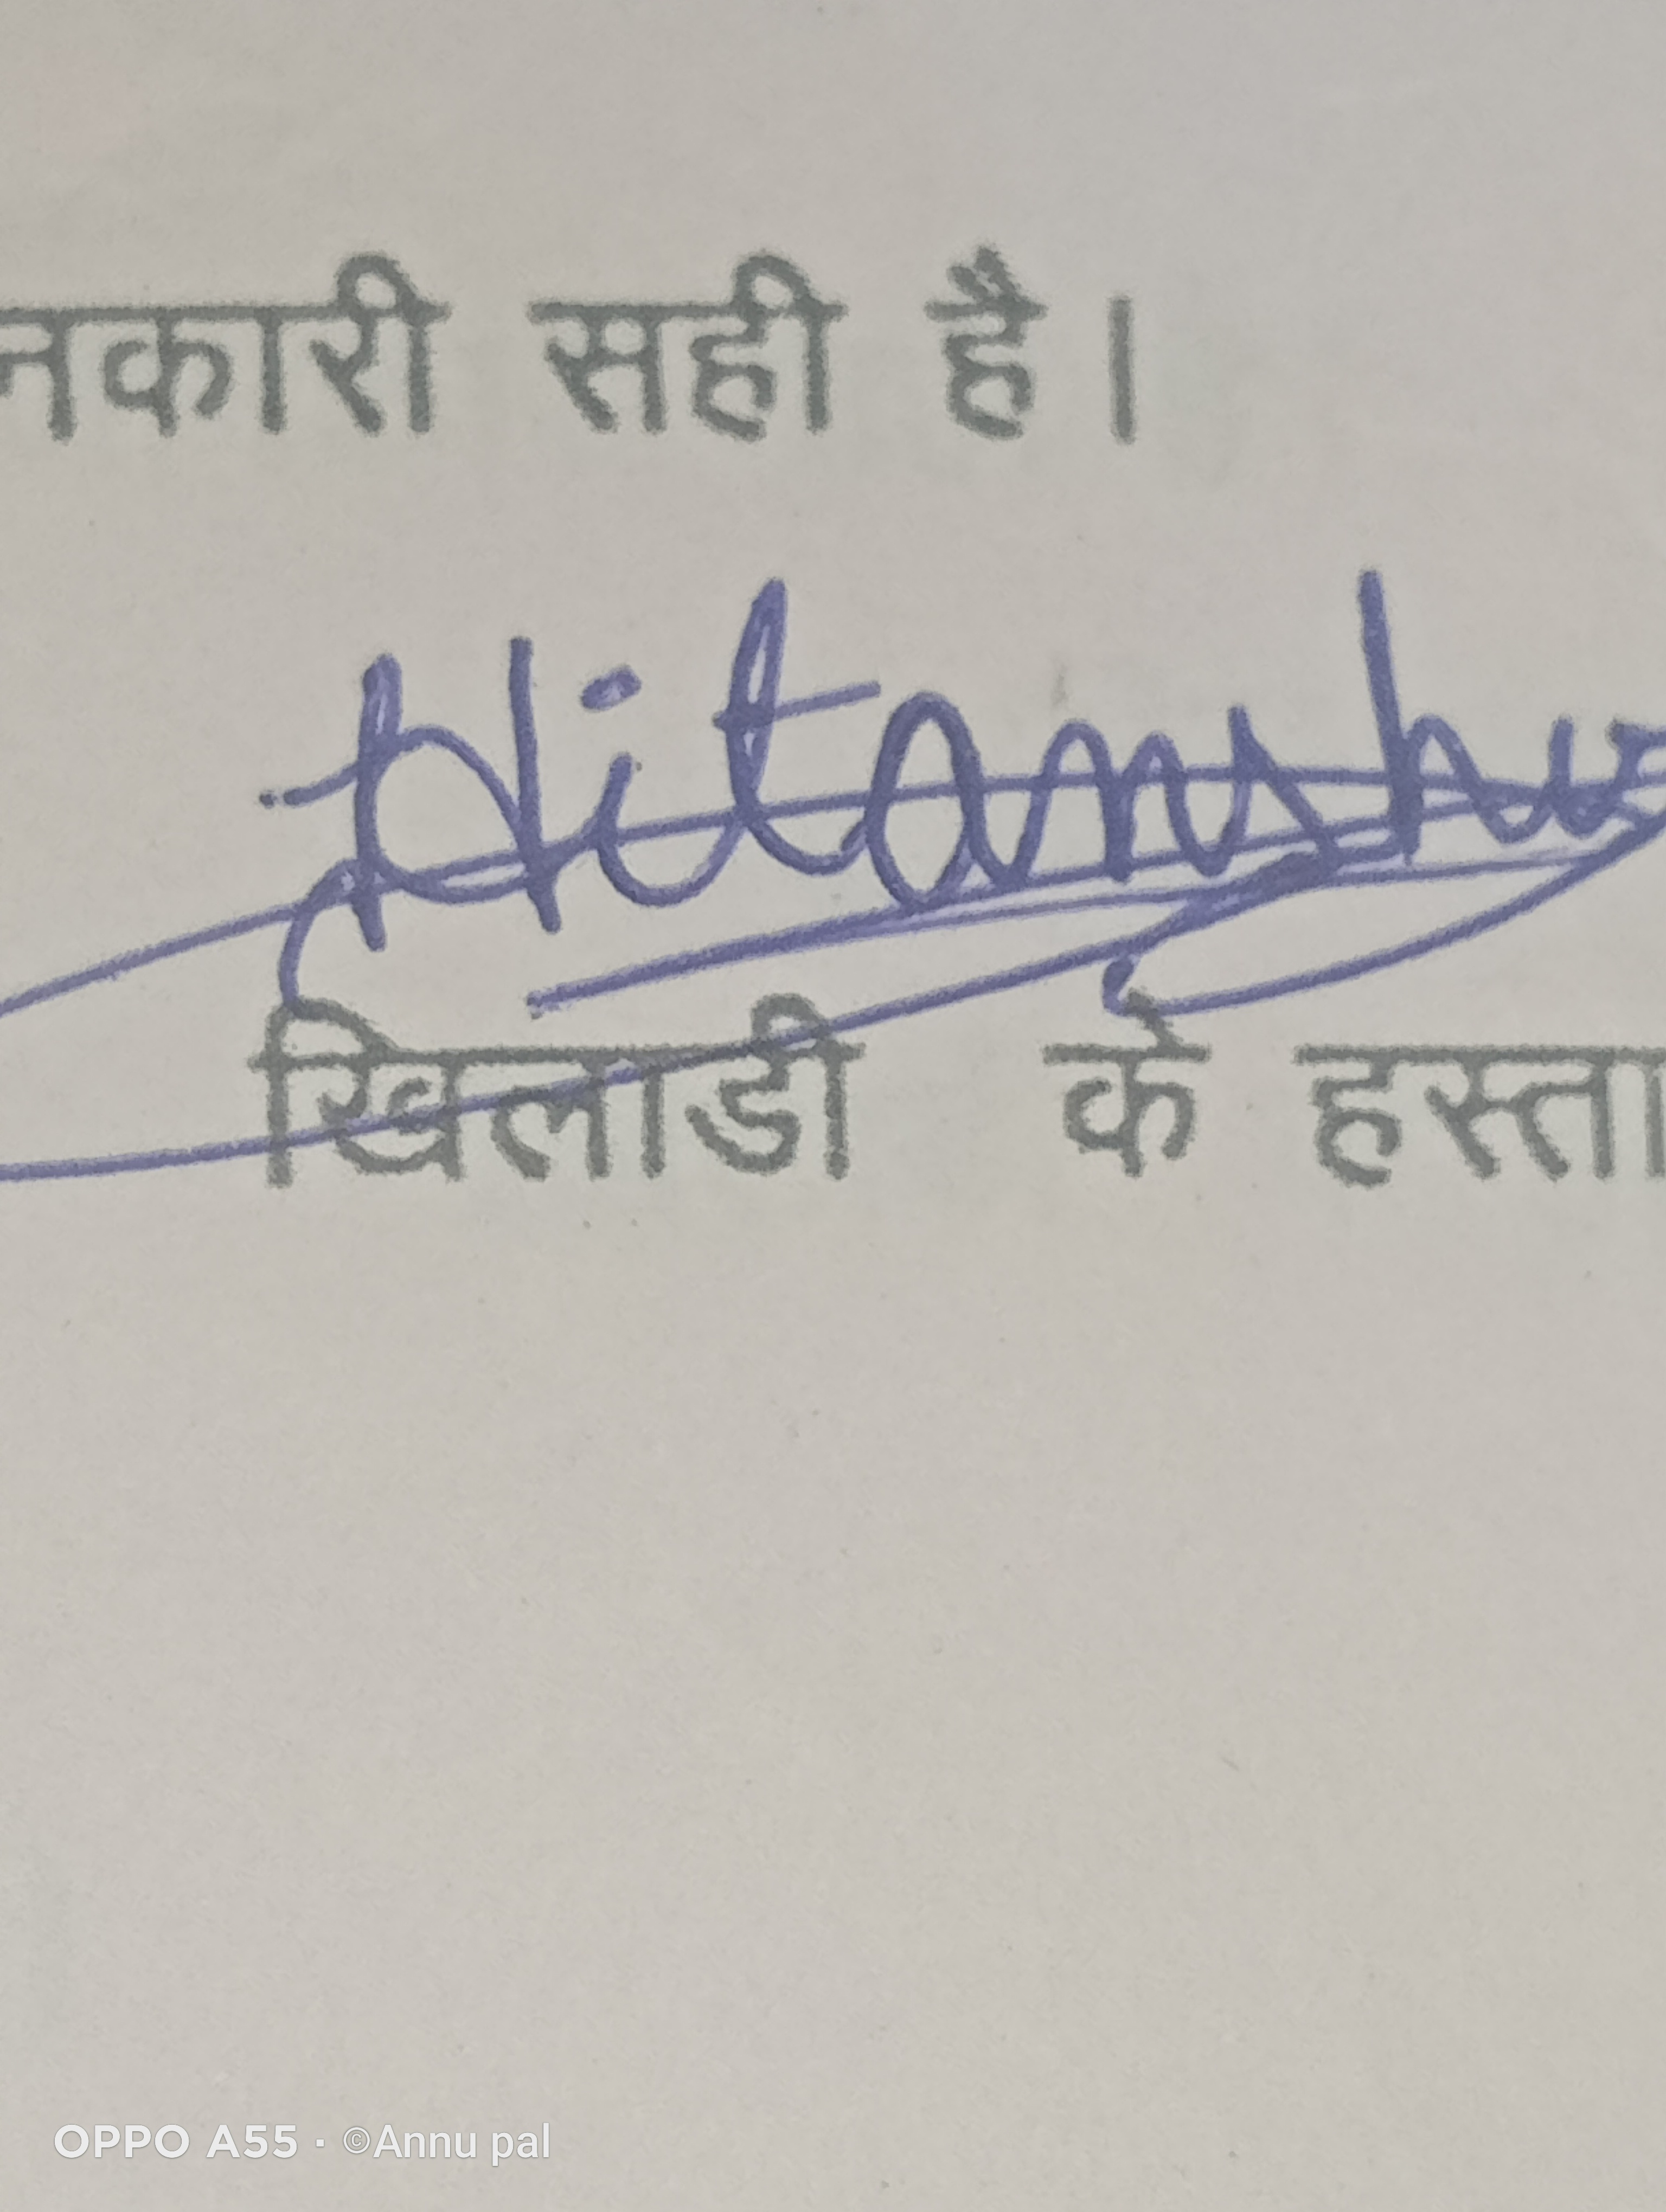 नकारी सही है।
Hitanshu
खिलाडी के हस्ता
OPPO A55 · ©Annu pal